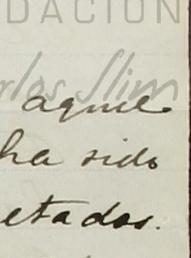 DACIÓN
rlos Slim
aque
ha sido
etados.